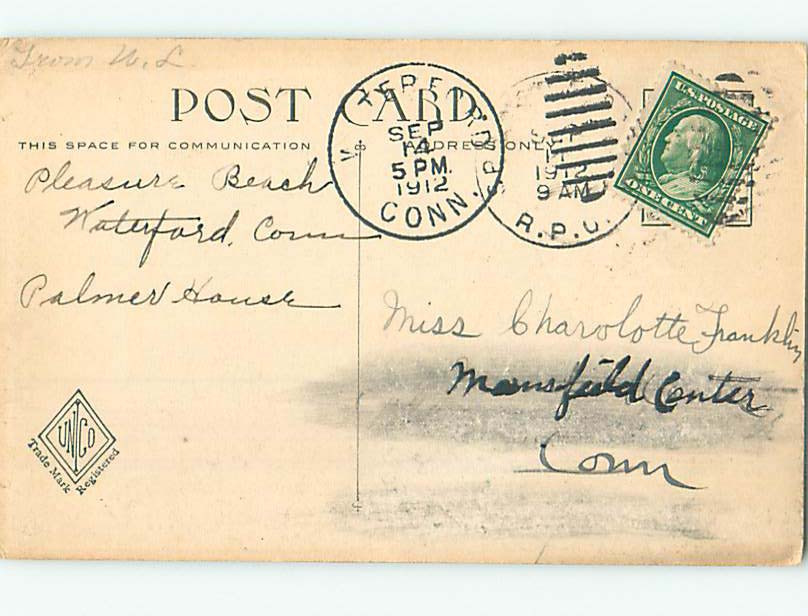 From W. L.
POST CARD
THIS SPACE FOR COMMUNICATION
ADDRESS ONLY
SEP
14
5 PM
1912
CONN.
1912
9 AM
R.P.O.
U.S. POSTAGE
ONE CENT
Pleasure Beach
Waterford, Conn
Palmer House
Miss Charolotte Franklin
Mansfield Center
Conn
UNCO
Trade Mark Registered